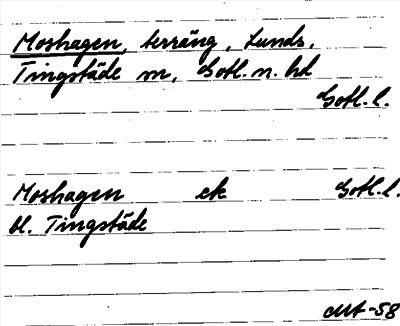 Moshagen, terräng, Lunds,
Tingstäde m, Gotl. n. hd
Gotl. l.
Moshagen ek Gotl. l.
bl. Tingstäde
-58